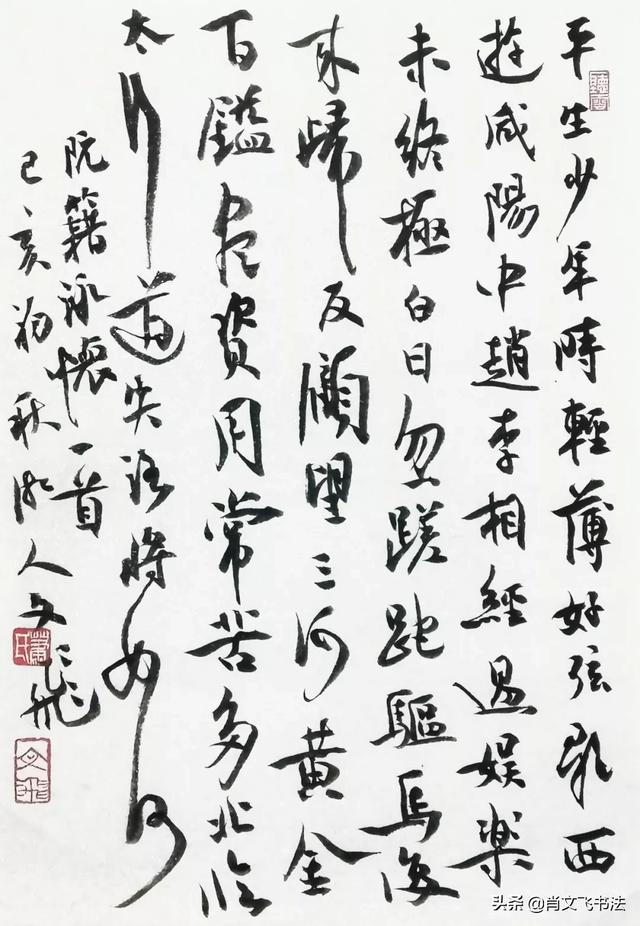 平生少年時輕薄好弦歌西
遊咸陽中趙李相經過娱樂
未終極白日忽蹉跎驅馬復
来歸反顧望三河黄金
百鎰盡資用常苦多北臨
太行道失路將如何
阮籍詠懷一首
己亥初秋湘人文飛
聽雲
蕭氏
文飛
头条 @肖文飞书法